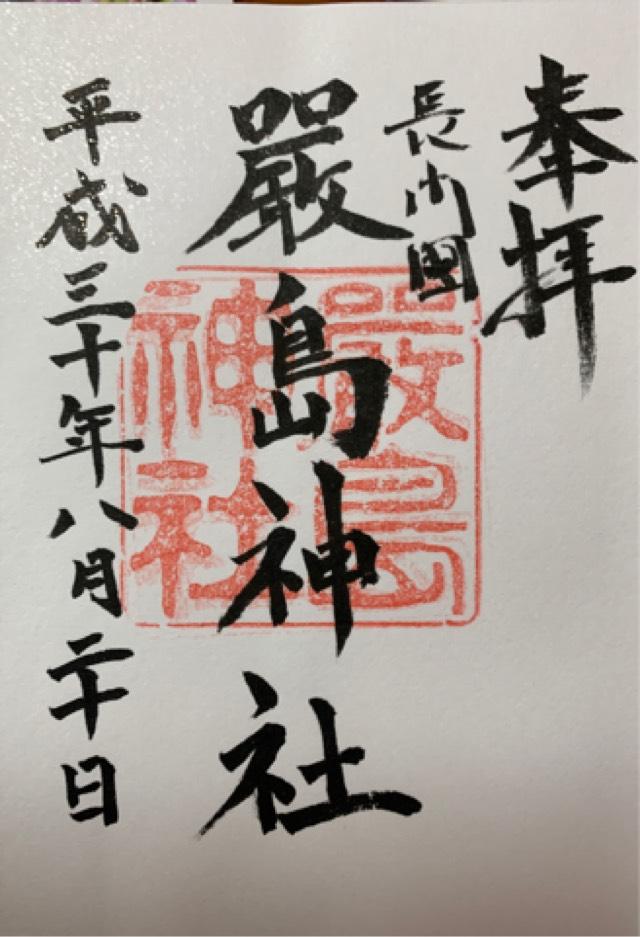 奉拝
長門國
嚴島神社
嚴島神社
平成三十年八月二十日